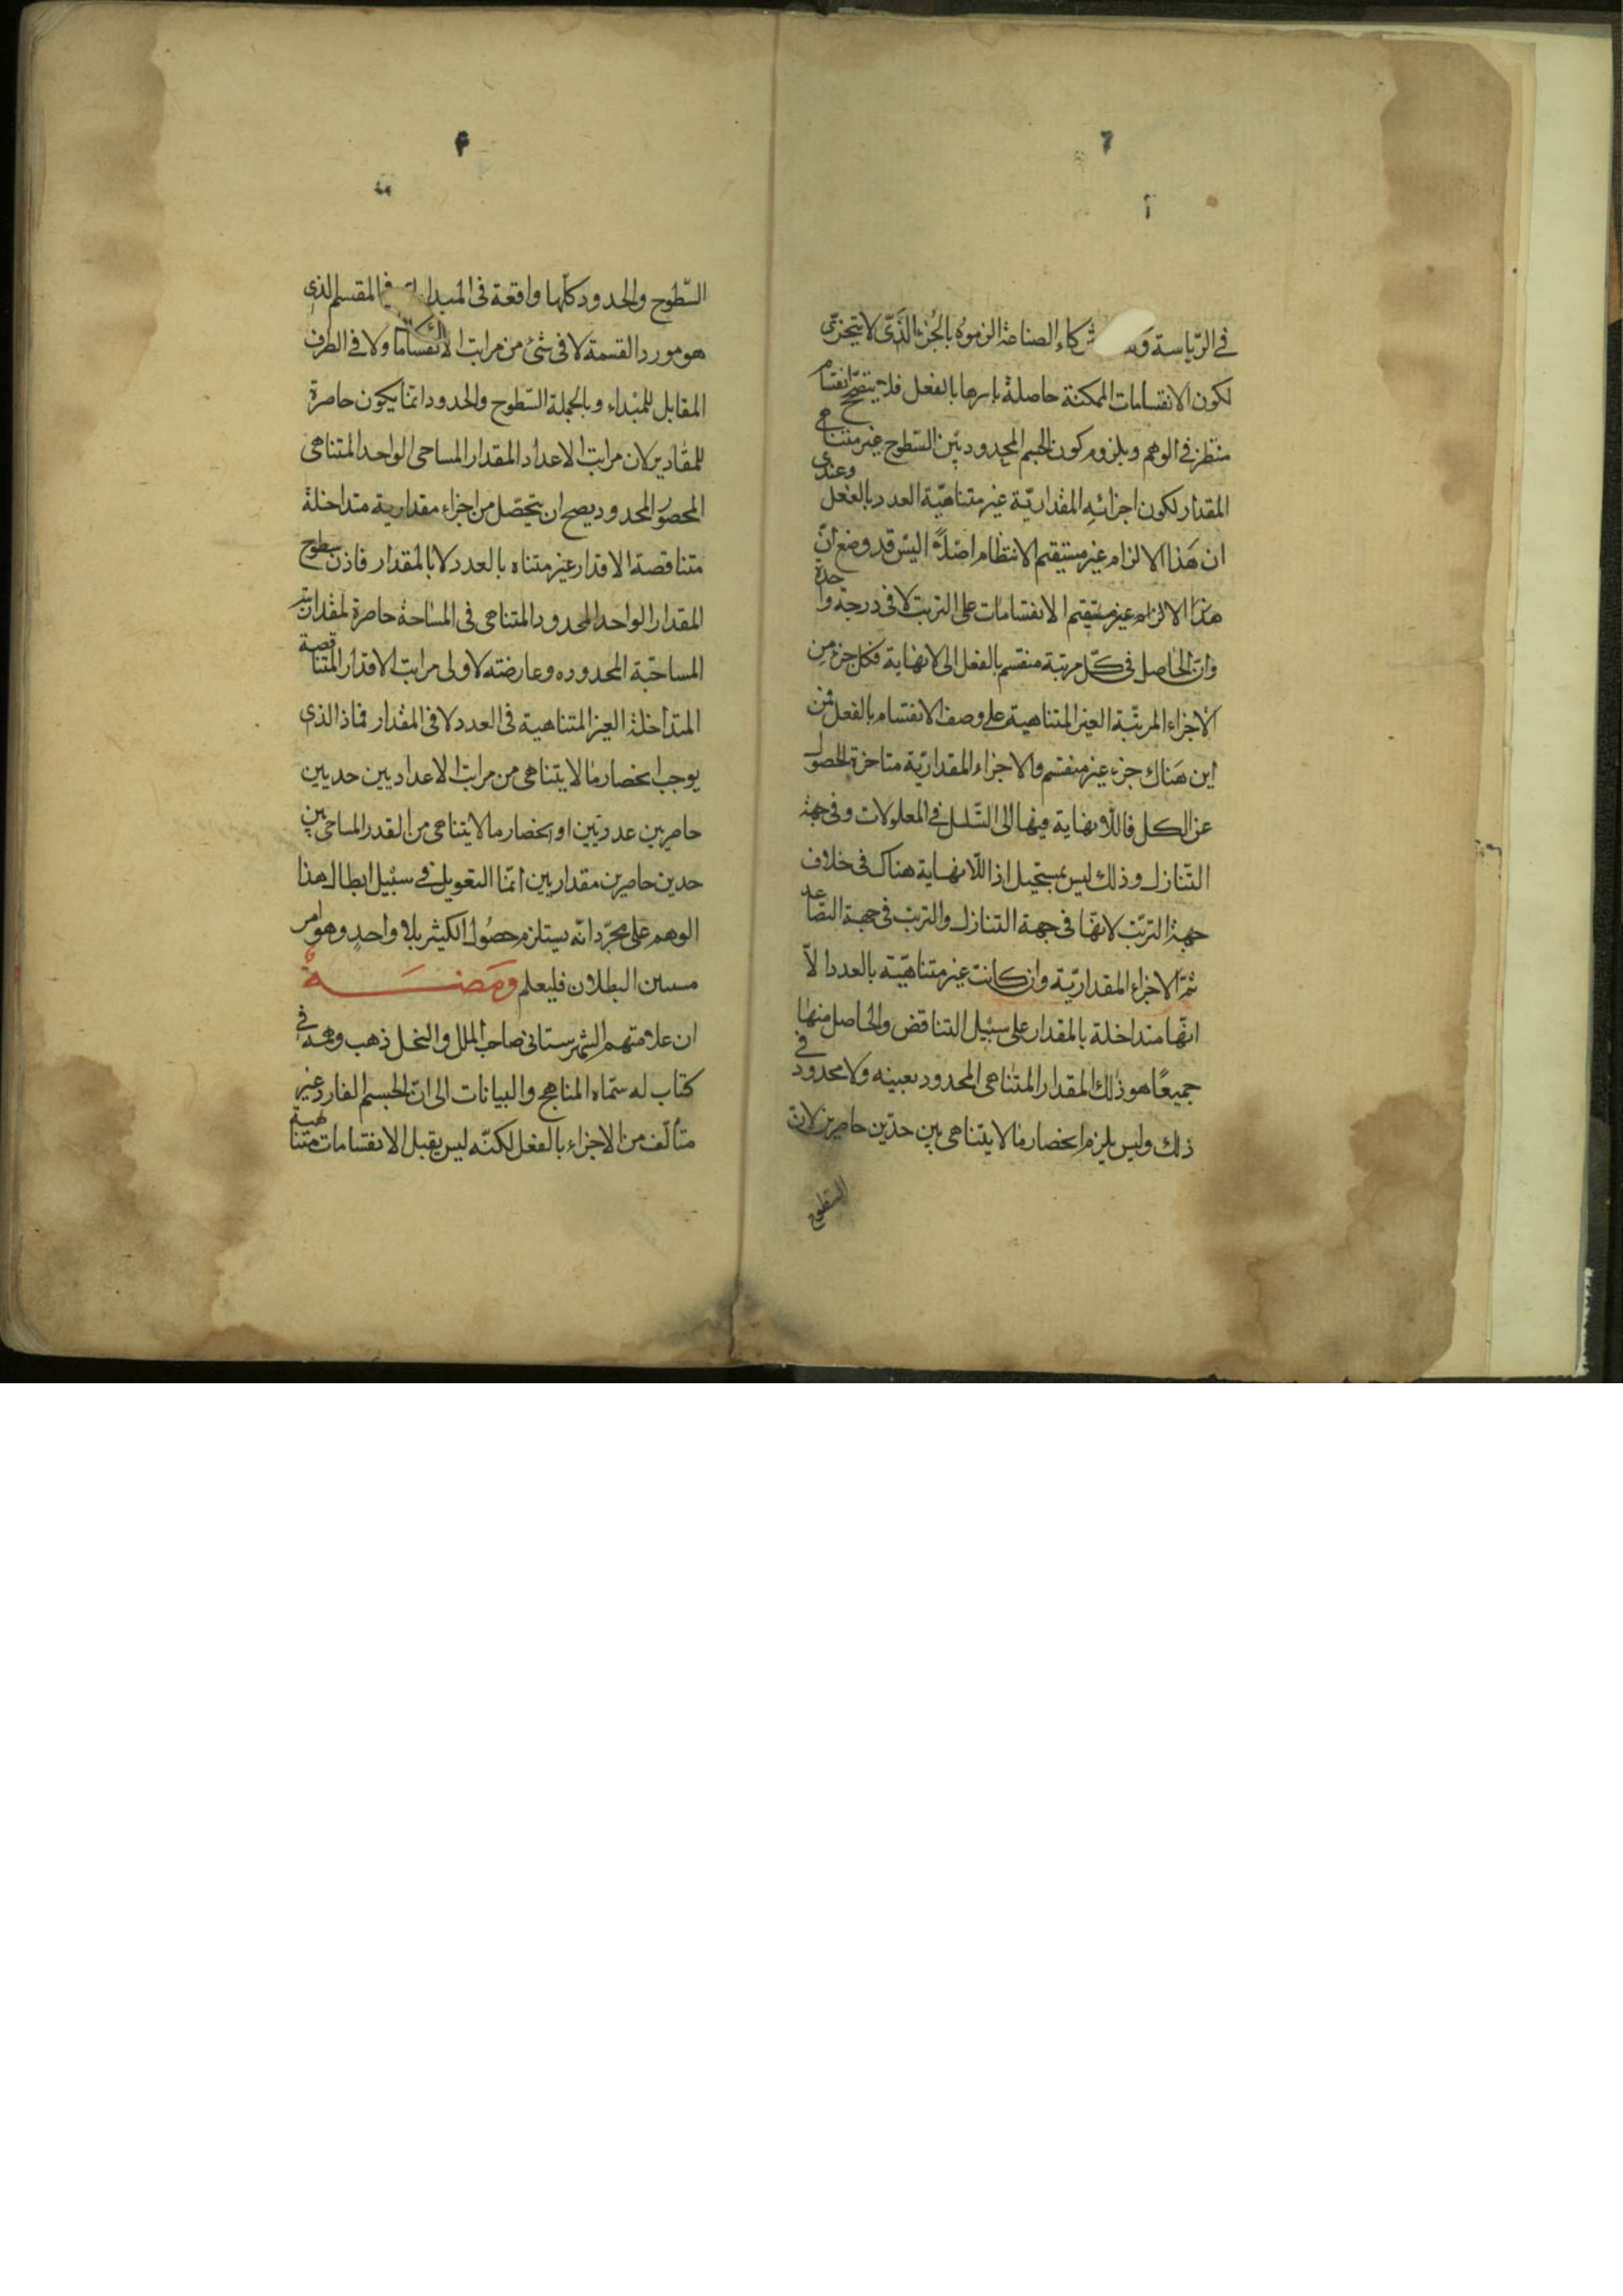 في الرّياسة كاء الصناعة الزموه بالجزء الذّي لا يتجزّى
لكون الانقسامات الممكنة حاصلة باسرها بالفعل فلا يتصحح انقسام
منتظر في الوهم ويلزوم كون الجسم المحدود بين السّطوح غير متناهي
المقدار لكون اجزائه المقداريّة غير متناهيّة العدد بالفعل وعندي
ان هذا الالزام غير مستقيم الانتظام اصلاً اليس قد وضع انّ
هذا الالزام غير مستقيم الانقسامات على الترتب لا في درجة واحدة
وانّ الحاصل في كلّ مرتبة منقسم بالفعل الى لا نهاية فكل جزء من
الاجزاء المرتبة الغير المتناهية على وصف الانقسام بالفعل فمن
اين هناك جزء غير منقسم والاجزاء المقداريّة متاخرة الحصول
عن الكل فاللّا نهاية فيها الى التسلسل في المعلولات وفي جهة
التّنازل وذلك ليس بمستحيل اذ اللّا نهاية هناك في خلاف
جهة الترتّب لانّها في جهة التنازل والترتب في جهة التصاعد
ثمّ الاجزاء المقداريّة وان كانت غير متناهيّة بالعدد الّا
انّها متداخلة بالمقدار على سبيل التناقض والحاصل منها
جميعًا هو ذلك المقدار المتناهي المحدود بعينه ولا محدود في
ذلك وليس يلزم انحصار ما لا يتناهى بين حدّين حاصرين لان
السطوح
۴
السّطوح والحدود كلّها واقعة في المقسم الذي
هو مورد القسمة لا في شئ من مراتب الانقساما ولا في الطرف
المقابل للمبداء وبالجملة السّطوح والحدود انما يكون حاصرة
للمقادير لان مراتب الاعداد المقدار المساحي الواحد المتناهي
المحصور المحدود يصح ان يتحصّل من اجزاء مقدارية متداخلة
متناقصة الاقدار غير متناه بالعدد لا بالمقدار فاذن سطوح
المقدار الواحد المحدود المتناهي في المساحة حاصرة لمقداريته
المساحيّة المحدوده وعارضته لا ولى مراتب الاقدار المتناقصة
المتداخلة الغير المتناهية في العدد لا في المقدار فماذ الذي
يوجب انحصار ما لا يتناهى من مراتب الاعداد بين حدين
حاصرين عدديين او انحصار ما لا يتناهى من القدر المساحي بين
حدين حاصرين مقداريين انّما التعويل في سبيل ابطال هذا
الوهم على مجرّد انّه يستلزم حصول الكثير بلا واحد وهو امر
مستبين البطلان فليعلم ومضة
ان علامتهم الشهرستاني صاحب الملل والنحل ذهب وهمه في
كتاب له سمّاه المناهج والبيانات الى انّ الجسم الفارد غير
متألّف من الاجزاء بالفعل لكنّه ليس يقبل الانقسامات متناهية